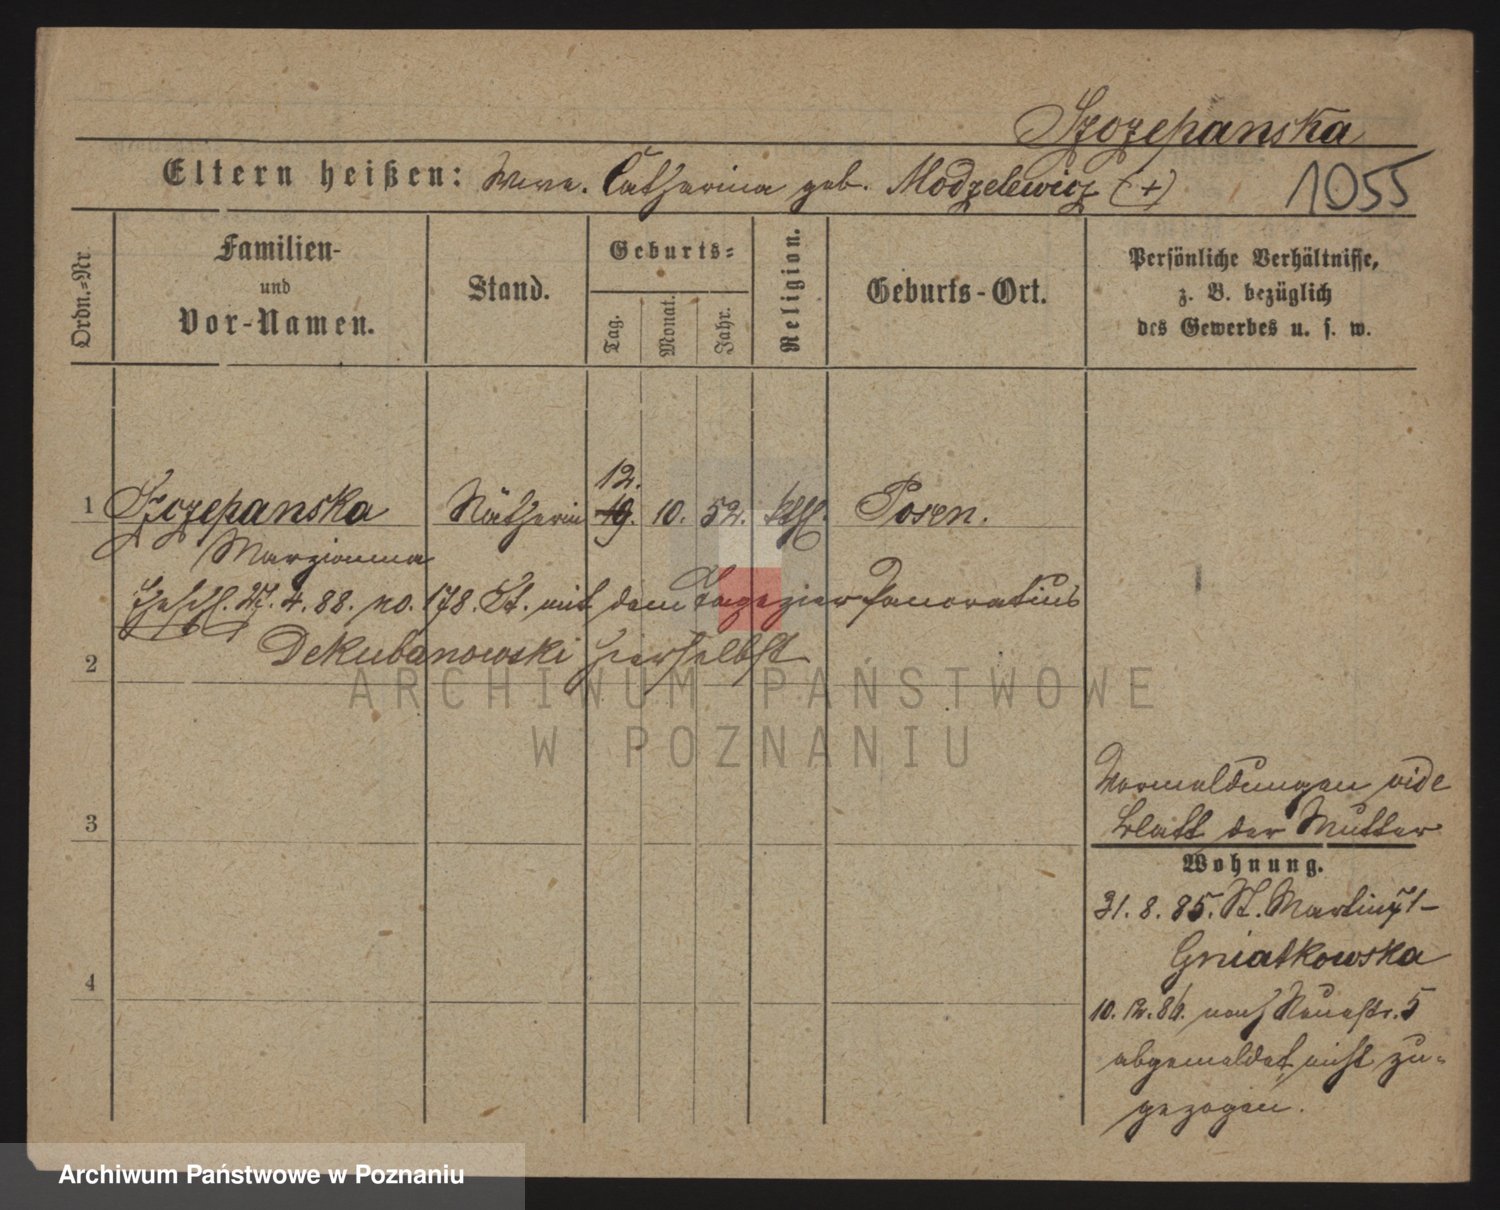 Szczepanska
Eltern heißen: Wwe. Catharina geb. Modzelewicz (+)
1055
Ordn.-Nr.
Familien-
und
Vor-Namen.
Stand.
Geburts-
Tag.
Monat.
Jahr.
Religion.
Geburts-Ort.
Persönliche Verhältnisse,
z. B. bezüglich
des Gewerbes u. s. w.
12.
1 Szczepanska Nätherin 19. 10. 52. kth. Posen.
Marzianna
Eheschl. 27. 4. 88. No. 178. St. mit dem Tapezier Pancratius
2 Dekubanowski hierselbst
ARCHIWUM PAŃSTWOWE
W POZNANIU
Vormeldungen vide
3 Blatt der Mutter
Wohnung.
31. 8. 85. St. Martin 71
Gniatkowska
4
10. 12. 86. nach Neuestr. 5
abgemeldet, nicht zu-
gezogen.
Archiwum Państwowe w Poznaniu